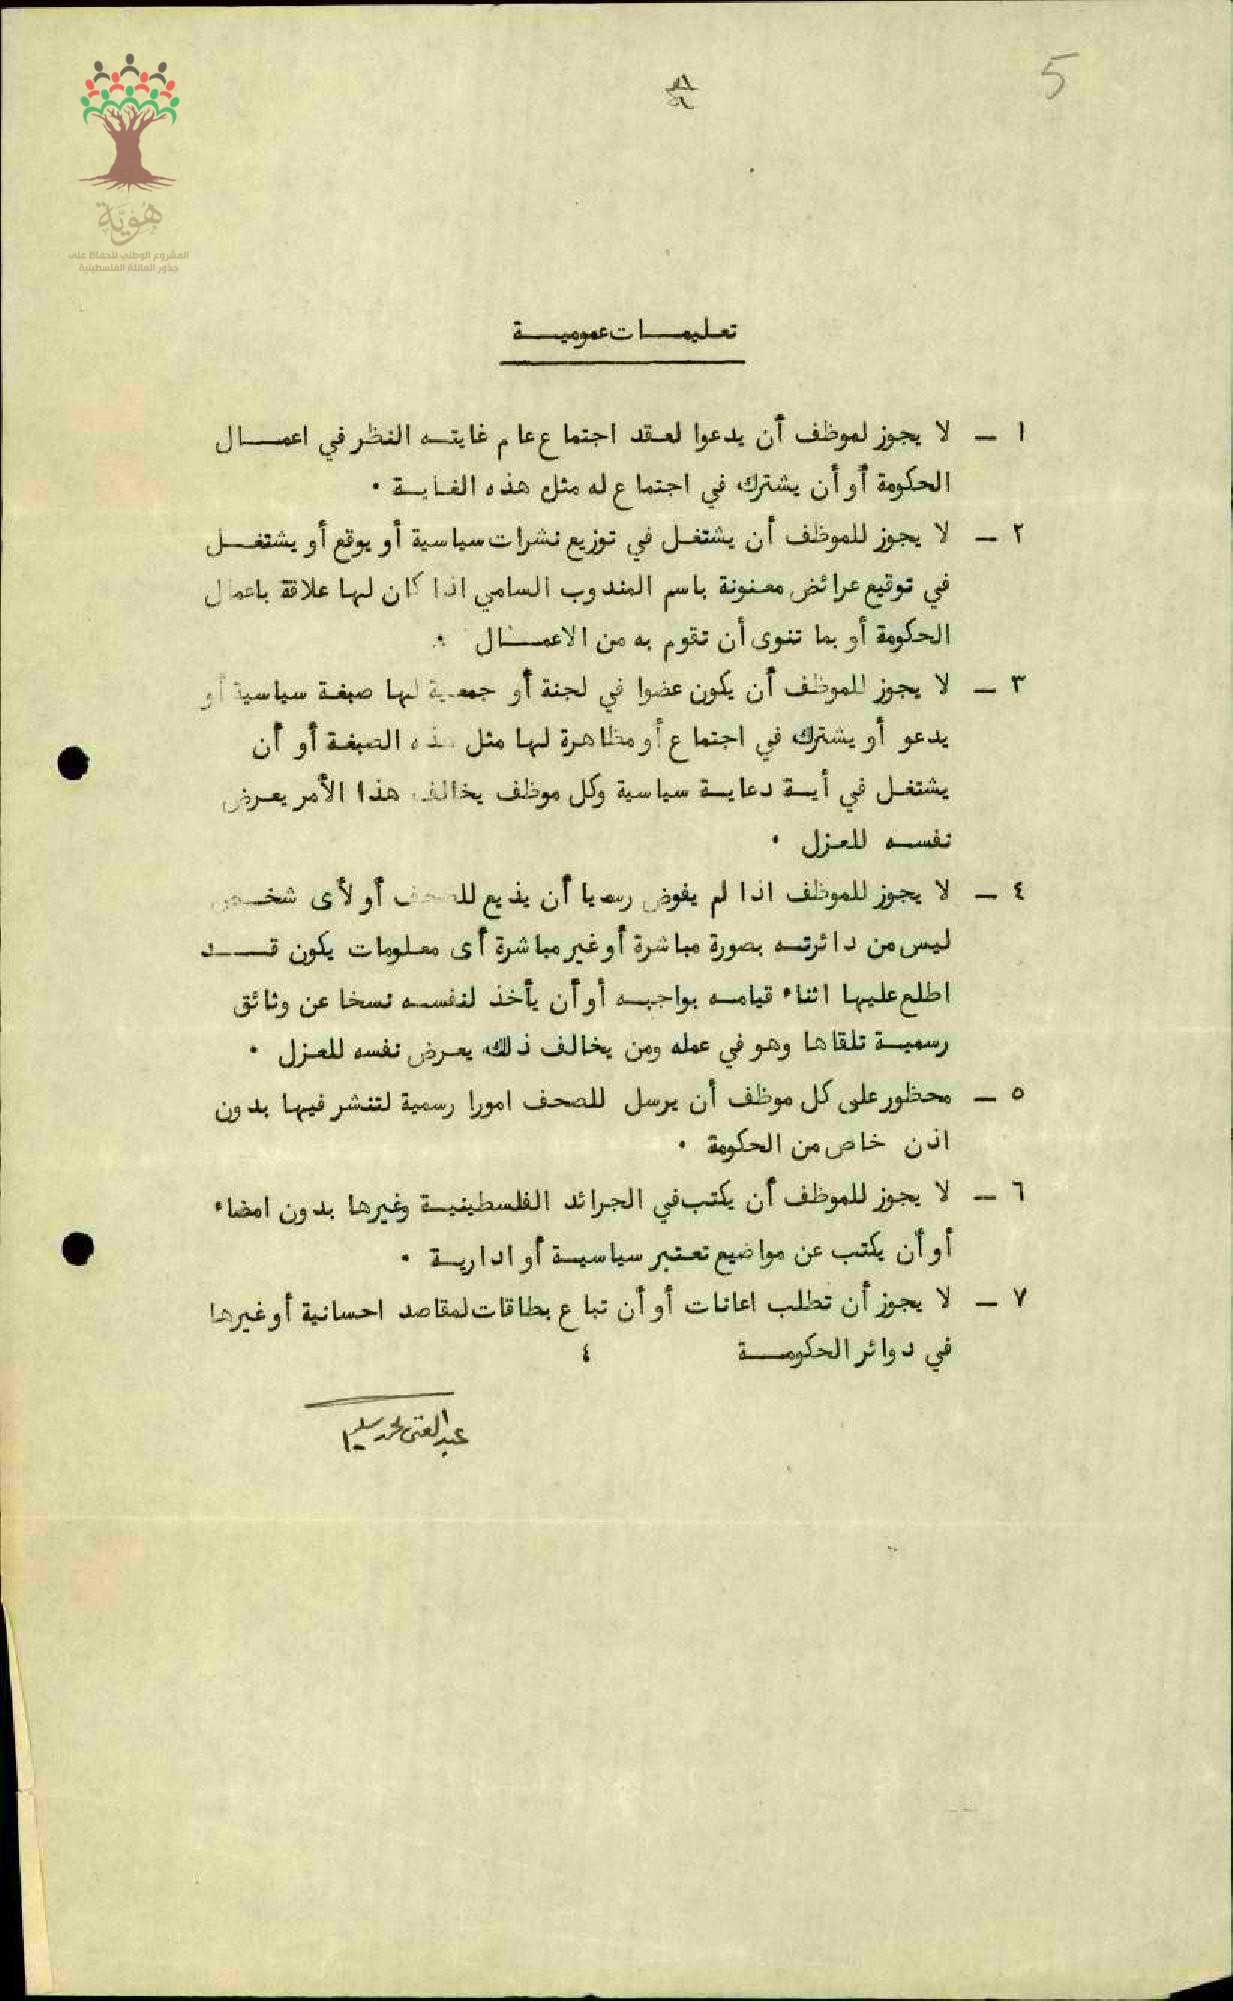 5
هوية
المشروع الوطني للحفاظ على
جذور العائلة الفلسطينية
تعليمـــات عموميـــة
١ ـ لا يجوز لموظف أن يدعوا لعقد اجتماع عام غايته النظر في اعمـــال
الحكومة أو أن يشترك في اجتماع له مثل هذه الغايـة ٠
٢ ـ لا يجوز للموظف أن يشتغـل في توزيع نشرات سياسية أو يوقع أو يشتغـــل
في توقيع عرائض معنونة باسم المندوب السامي اذا كان لها علاقة باعمال
الحكومة أو بما تنوى أن تقوم به من الاعمـــال ٠
٣ ـ لا يجوز للموظف أن يكون عضوا في لجنة أو جمعية لها صبغة سياسية أو
يدعو أو يشترك في اجتماع أو مظاهرة لها مثل هذه الصبغة أو أن
يشتغـل في أيـة دعايـة سياسية وكل موظف يخالف هذا الأمر يعرض
نفسـه للعزل ٠
٤ ـ لا يجوز للموظف اذا لم يفوض رسميا أن يذيع للصحف أو لأى شخـــص
ليس من دائرتـه بصورة مباشرة أو غير مباشرة أى معلومات يكون قـــد
اطلع عليها اثناء قيامـه بواجبـه أو أن يأخذ لنفسـه نسخا عن وثائق
رسميـة تلقاها وهو في عمله ومن يخالف ذلك يعرض نفسه للعزل ٠
٥ ـ محظور على كل موظف أن يرسل للصحف امورا رسمية لتنشر فيها بدون
اذن خاص من الحكومة ٠
٦ ـ لا يجوز للموظف أن يكتب في الجرائد الفلسطينيـة وغيرها بدون امضاء
أو أن يكتب عن مواضيع تعتبر سياسيـة أو اداريـة ٠
٧ ـ لا يجوز أن تطلب اعانات أو أن تباع بطاقات لمقاصد احسانية أو غيرها
في دوائر الحكومـــة ٤